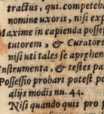 ractus, qui. competeb
nomine uxoris, nisi exp
Maxime in capienda possess
tutorem, & Curatore
nisi uti tales se aprobent
Instrumenta, & testes pr
Possessio probari potest p
alijs modis nn. 44.
Nisi quando quis pro